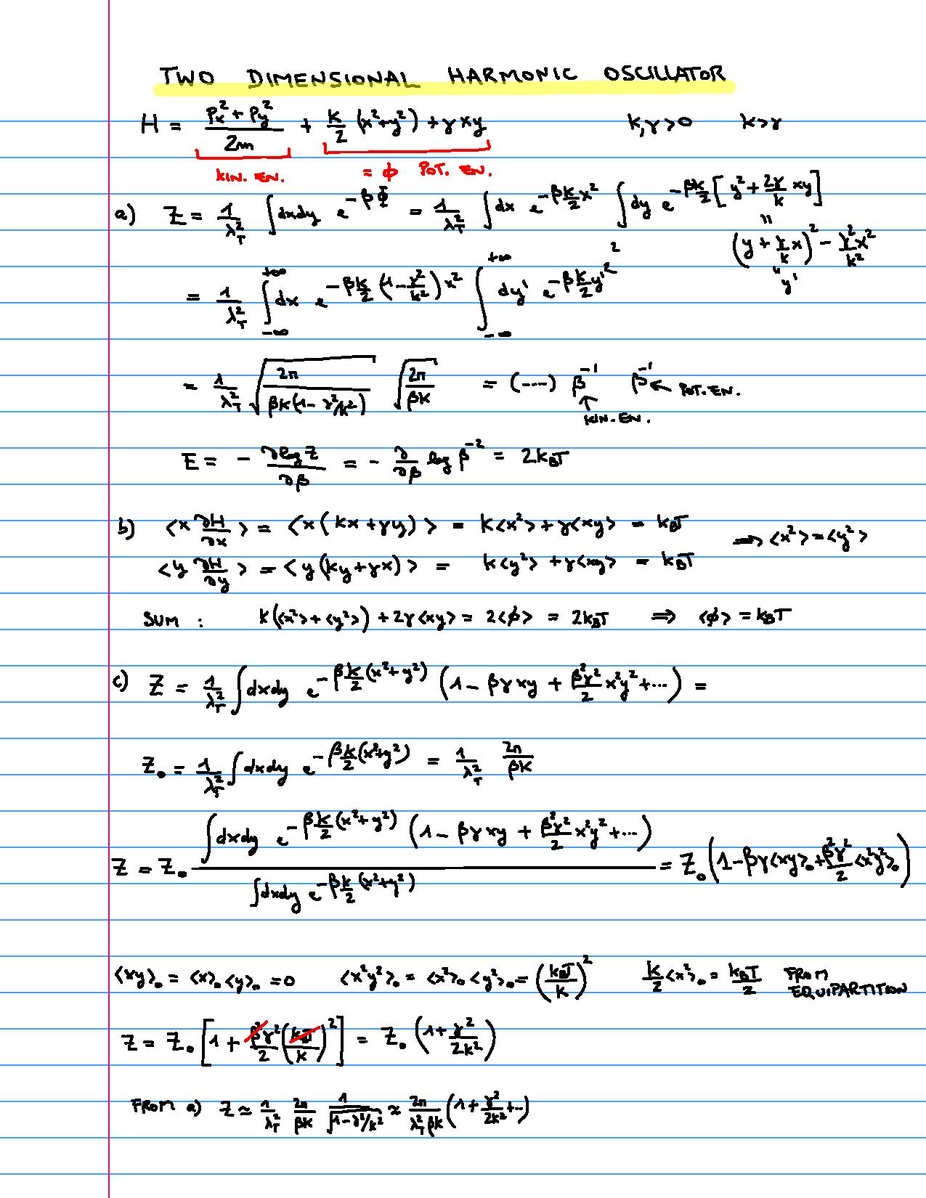 TWO DIMENSIONAL HARMONIC OSCILLATOR
H = (Px² + Py²)/2m + k/2 (x²+y²) + γxy k,γ>0 k>γ
KIN. EN. = ϕ POT. EN.
a) Z = 1/λ_T² ∫dxdy e^{-βΦ} = 1/λ_T² ∫dx e^{-βk/2 x²} ∫dy e^{-βk/2 [y² + 2γ/k xy]}
" (y + γ/k x)² - γ²/k² x²
" y'
= 1/λ_T² ∫_{-∞}^{+∞} dx e^{-βk/2 (1-γ²/k²) x²} ∫_{-∞}^{+∞} dy' e^{-βk/2 y'²}
= 1/λ_T² √(2π/(βk(1-γ²/k²))) √(2π/βk) = (----) β^{-1} β^{-1} ← POT. EN.
↑ KIN. EN.
E = - ∂log Z/∂β = - ∂/∂β log β^{-2} = 2k_BT
b) ⟨x ∂H/∂x⟩ = ⟨x(kx+γy)⟩ = k⟨x²⟩+γ⟨xy⟩ = k_BT ⟹ ⟨x²⟩=⟨y²⟩
⟨y ∂H/∂y⟩ = ⟨y(ky+γx)⟩ = k⟨y²⟩+γ⟨xy⟩ = k_BT
SUM : k(⟨x²⟩+⟨y²⟩)+2γ⟨xy⟩ = 2⟨ϕ⟩ = 2k_BT ⟹ ⟨ϕ⟩ = k_BT
c) Z = 1/λ_T² ∫dxdy e^{-βk/2 (x²+y²)} (1 - βγxy + β²γ²/2 x²y² + ...) =
Z₀ = 1/λ_T² ∫dxdy e^{-βk/2 (x²+y²)} = 1/λ_T² 2π/βk
Z = Z₀ ∫dxdy e^{-βk/2 (x²+y²)} (1 - βγxy + β²γ²/2 x²y² + ...) / ∫dxdy e^{-βk/2 (x²+y²)} = Z₀ (1-βγ⟨xy⟩₀ + β²γ²/2 ⟨x²y²⟩₀)
⟨xy⟩₀ = ⟨x⟩₀⟨y⟩₀ = 0 ⟨x²y²⟩₀ = ⟨x²⟩₀⟨y²⟩₀ = (k_BT/k)² k/2 ⟨x²⟩₀ = k_BT/2 FROM EQUIPARTITION
Z = Z₀ [1 + β²γ²/2 (k_BT/k)²] = Z₀ (1 + γ²/2k²)
FROM a) Z ≃ 1/λ_T² 2π/βk 1/√(1-γ²/k²) ≈ 2π/λ_T²βk (1 + γ²/2k² + ..)